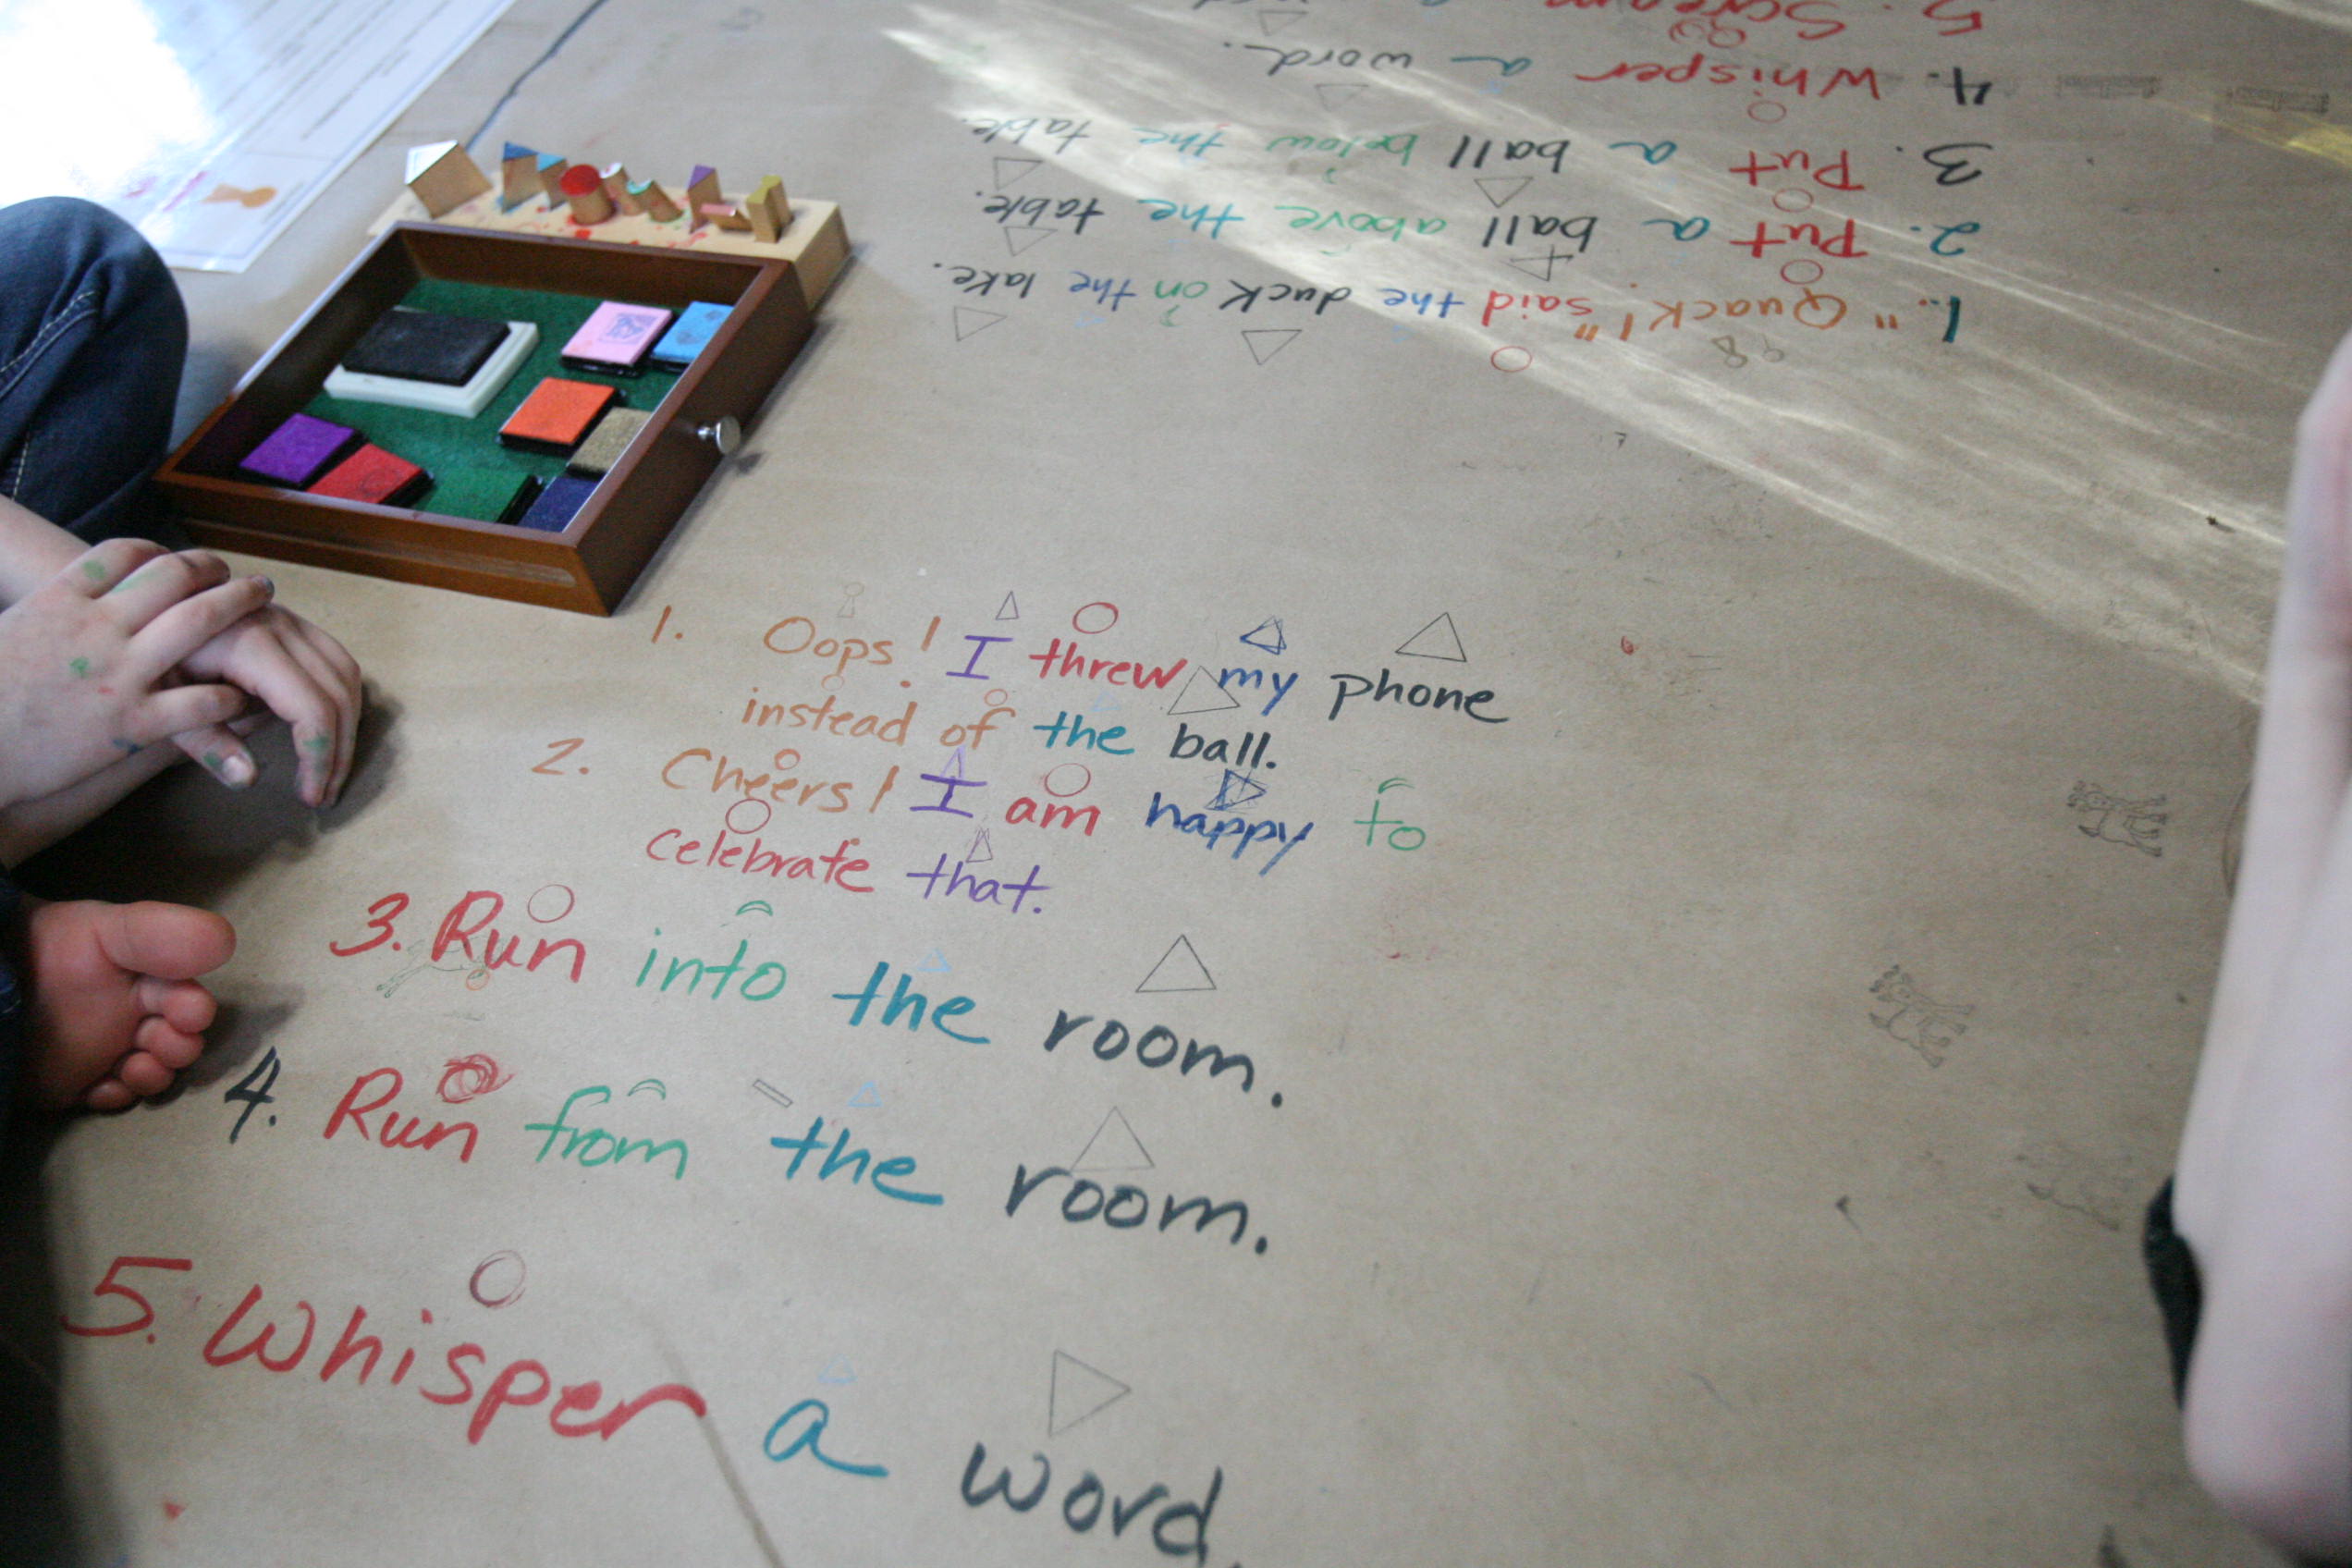 1. Oops! I threw my phone
instead of the ball.
2. Cheers! I am happy to
celebrate that.
3. Run into the room.
4. Run from the room.
5. Whisper a word.
1. "Quack!" said the duck on the lake.
2. Put a ball above the table.
3. Put a ball below the table.
4. Whisper a word.
5. Scream